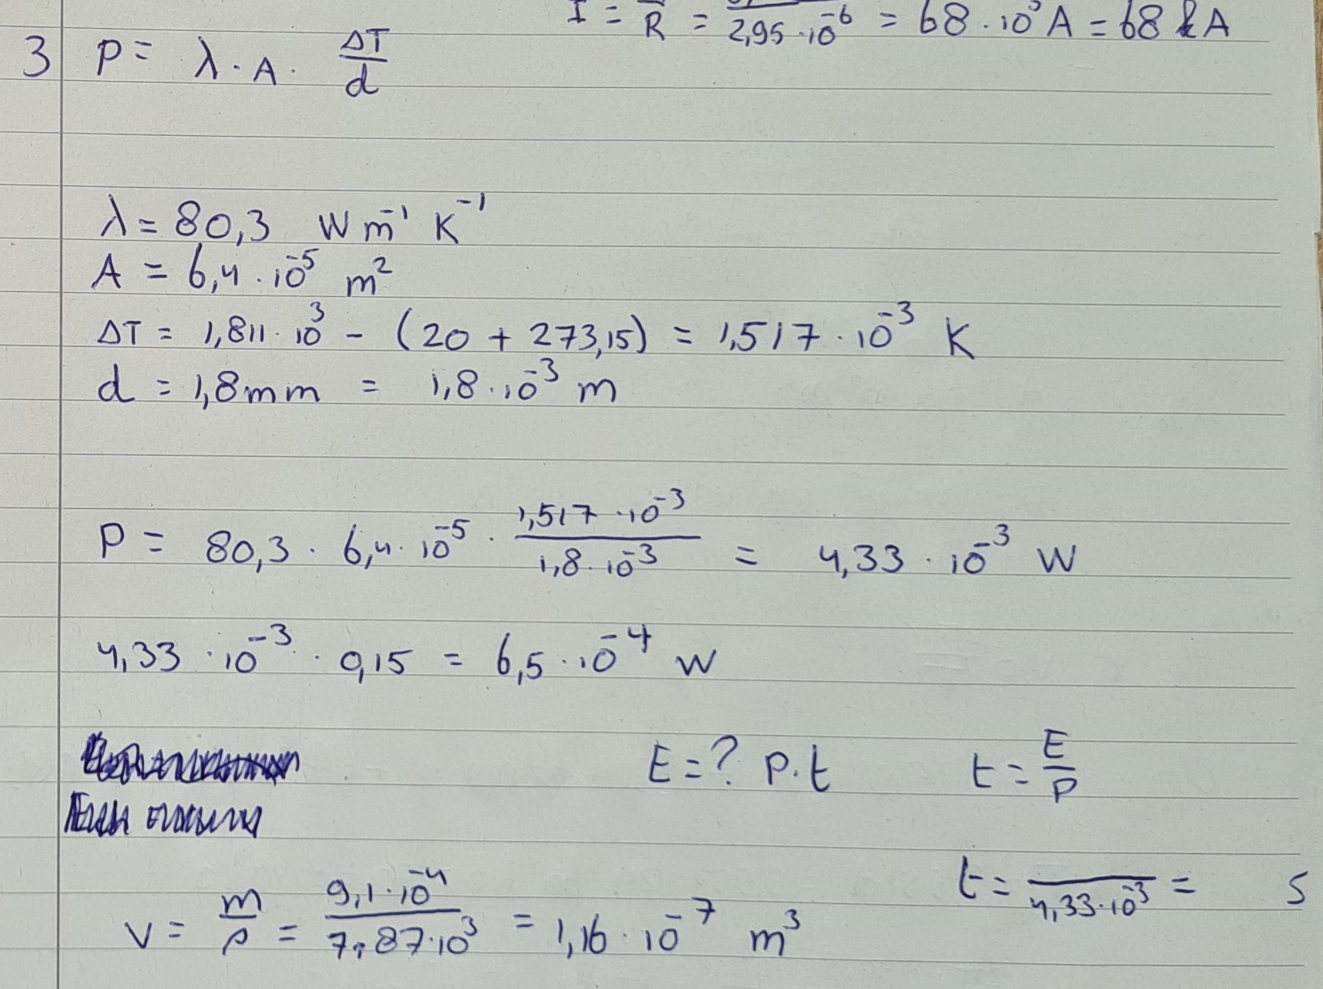 I = — R = — 2,95·10⁻⁶ = 68·10³ A = 68 kA
3 P = λ·A· ΔT/d
λ = 80,3 W m⁻¹ K⁻¹
A = 6,4·10⁻⁵ m²
ΔT = 1,811·10³ - (20 + 273,15) = 1,517·10⁻³ K
d = 1,8mm = 1,8·10⁻³ m
P = 80,3 · 6,4·10⁻⁵ · 1,517·10⁻³/1,8·10⁻³ = 4,33·10⁻³ W
4,33·10⁻³ · 0,15 = 6,5·10⁻⁴ W
E = ? P.t t = E/P
t = —/4,33·10⁻³ = s
V = m/ρ = 9,1·10⁻⁴/7,87·10³ = 1,16·10⁻⁷ m³